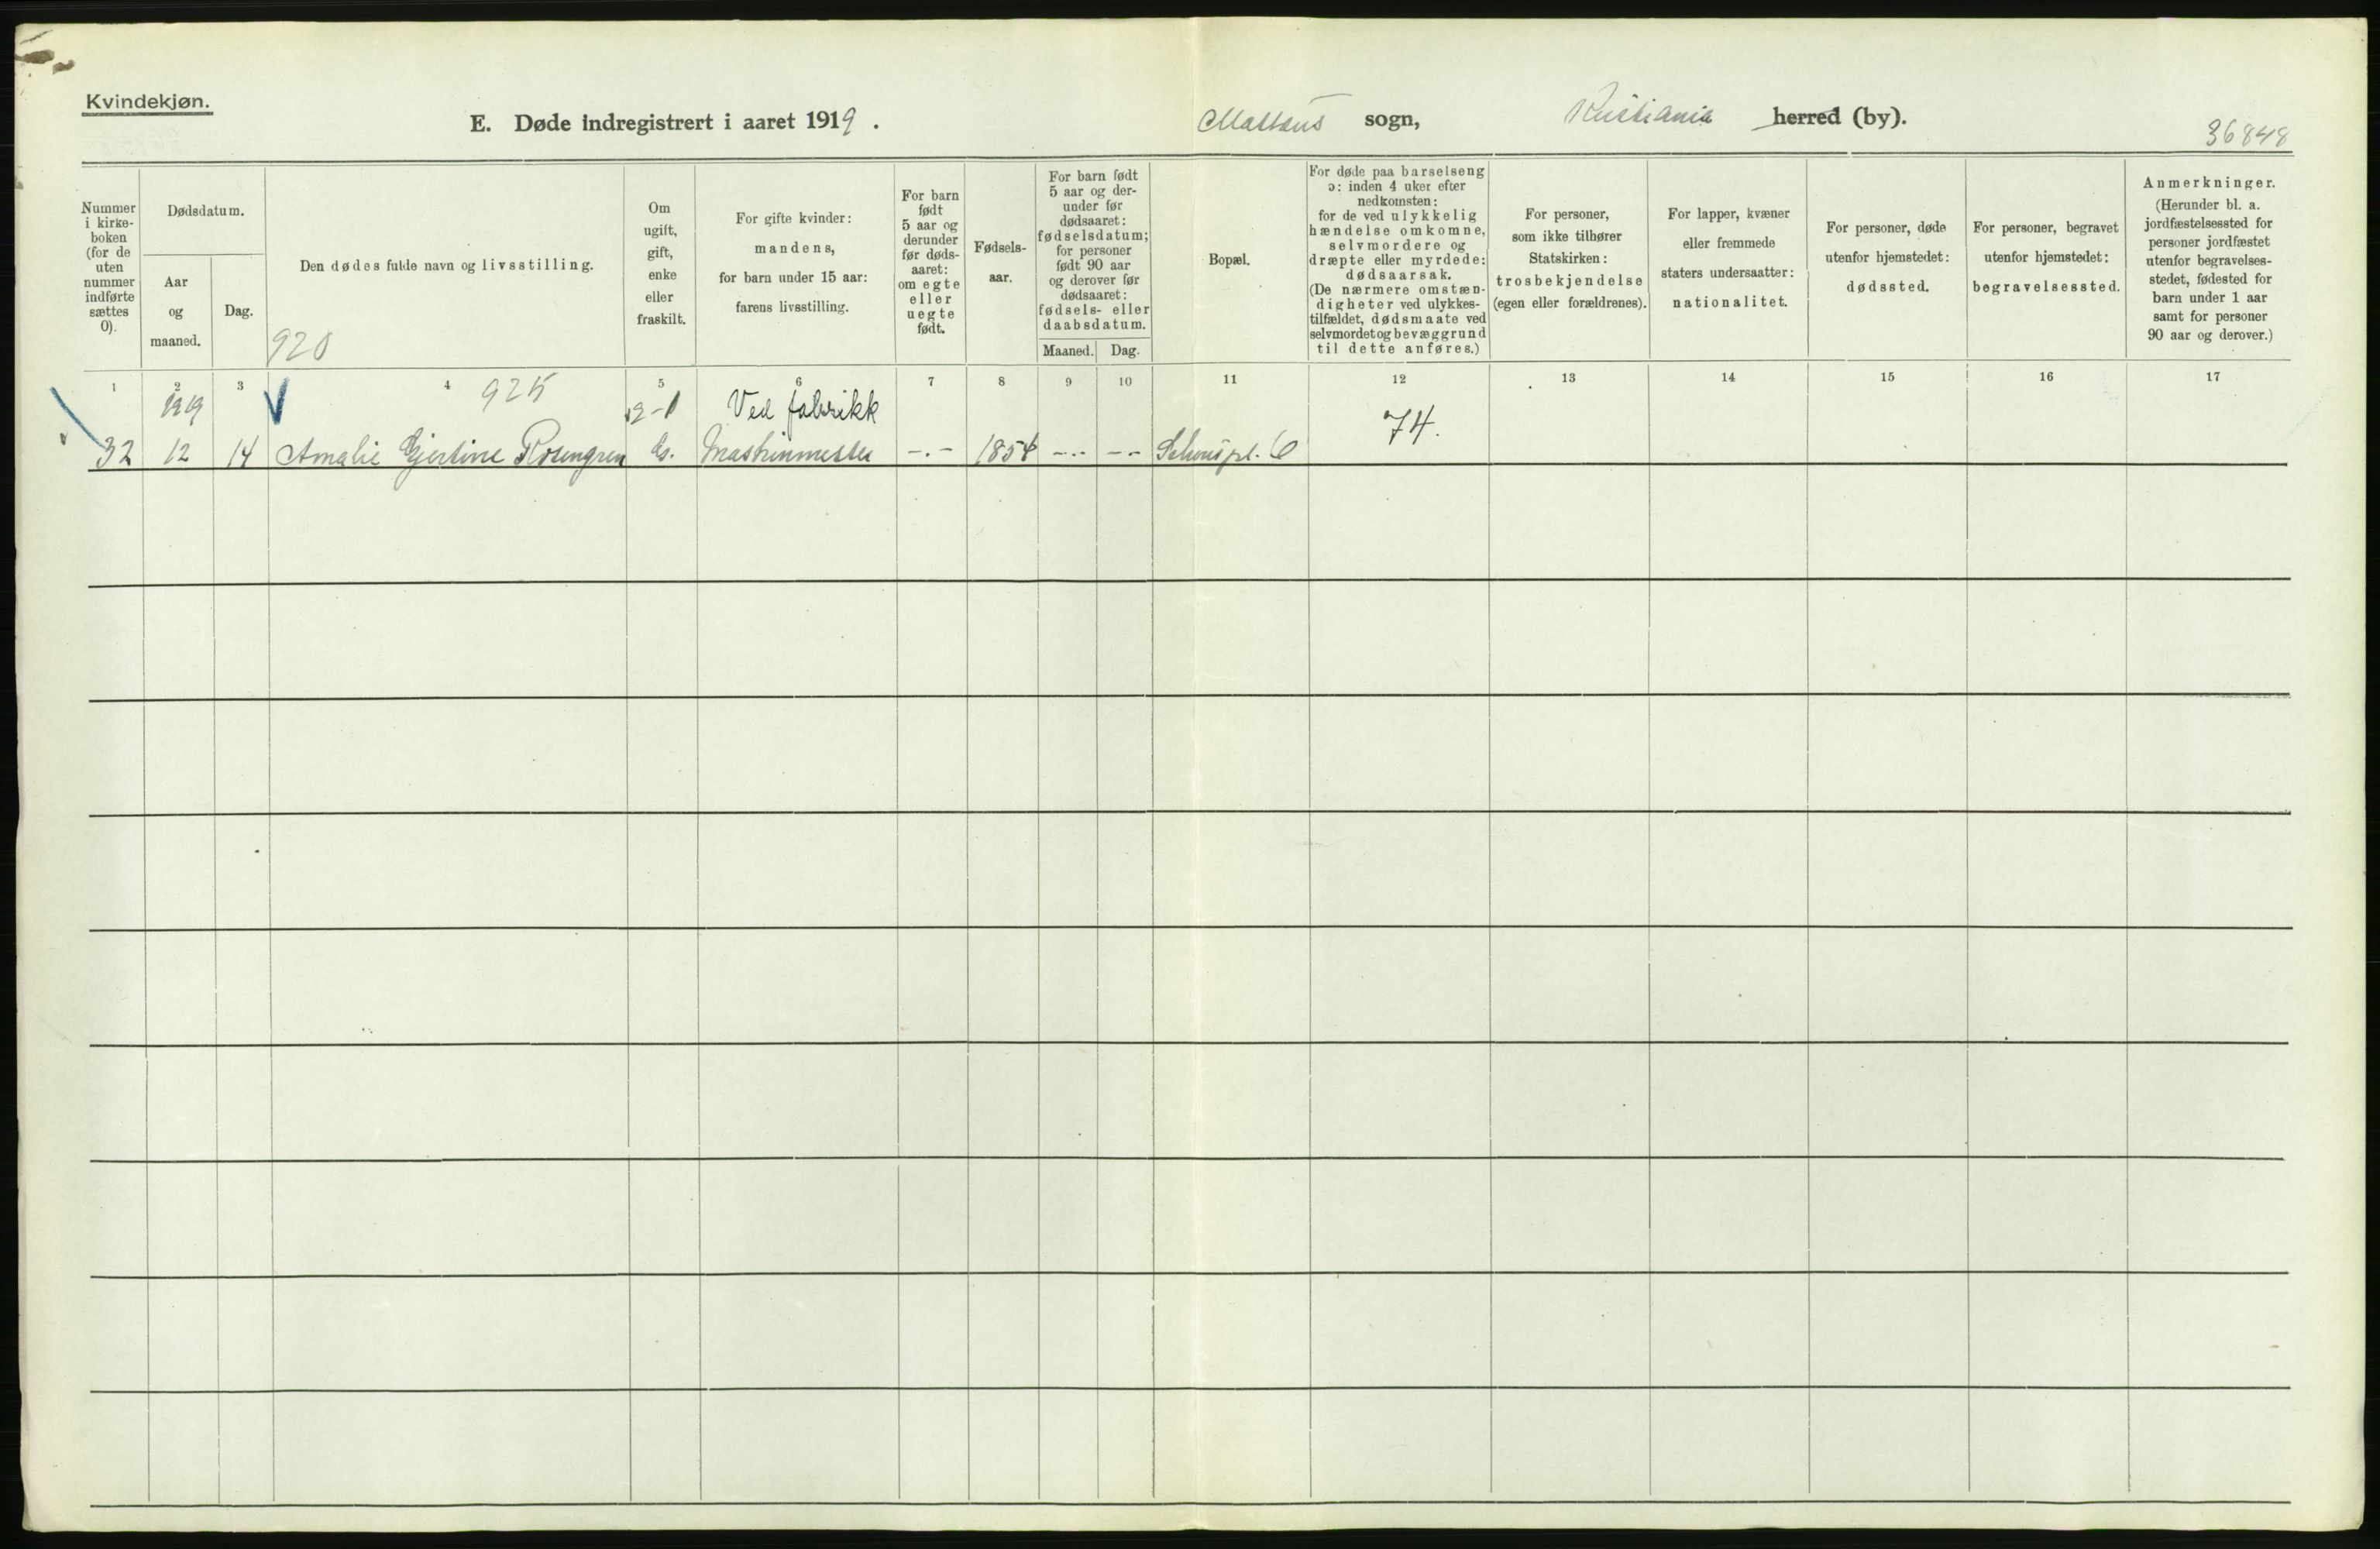 Kvindekjøn.
E. Døde indregistrert i aaret 1919.
Mattæus sogn,
Kristiania herred (by).
36848
Nummer
i kirke-
boken
(for de
uten
nummer
indførte
sættes
0).
Dødsdatum.
Aar
og
maaned.
Dag.
Den dødes fulde navn og livsstilling.
920
Om
ugift,
gift,
enke
eller
fraskilt.
For gifte kvinder:
mandens,
for barn under 15 aar:
farens livsstilling.
For barn
født
5 aar og
derunder
før døds-
aaret:
om egte
eller
uegte
født.
Fødsels-
aar.
For barn født
5 aar og der-
under før
dødsaaret:
fødselsdatum;
for personer
født 90 aar
og derover før
dødsaaret:
fødsels- eller
daabsdatum.
Maaned.
Dag.
Bopæl.
For døde paa barselseng
ɔ: inden 4 uker efter
nedkomsten:
for de ved ulykkelig
hændelse omkomne,
selvmordere og
dræpte eller myrdede:
dødsaarsak.
(De nærmere omstæn-
digheter ved ulykkes-
tilfældet, dødsmaate ved
selvmordet og bevæggrund
til dette anføres.)
For personer,
som ikke tilhører
Statskirken:
trosbekjendelse
(egen eller forældrenes).
For lapper, kvæner
eller fremmede
staters undersaatter:
nationalitet.
For personer, døde
utenfor hjemstedet:
dødssted.
For personer, begravet
utenfor hjemstedet:
begravelsessted.
Anmerkninger.
(Herunder bl. a.
jordfæstelsessted for
personer jordfæstet
utenfor begravelses-
stedet, fødested for
barn under 1 aar
samt for personer
90 aar og derover.)
1 2 3 4 5 6 7 8 9 10 11 12 13 14 15 16 17
1919 925 Ved fabrikk 74.
32 12 14 Amalie Gjertine Rosengren G. Maskinmester -.- 1854 -.- -- pl. 6